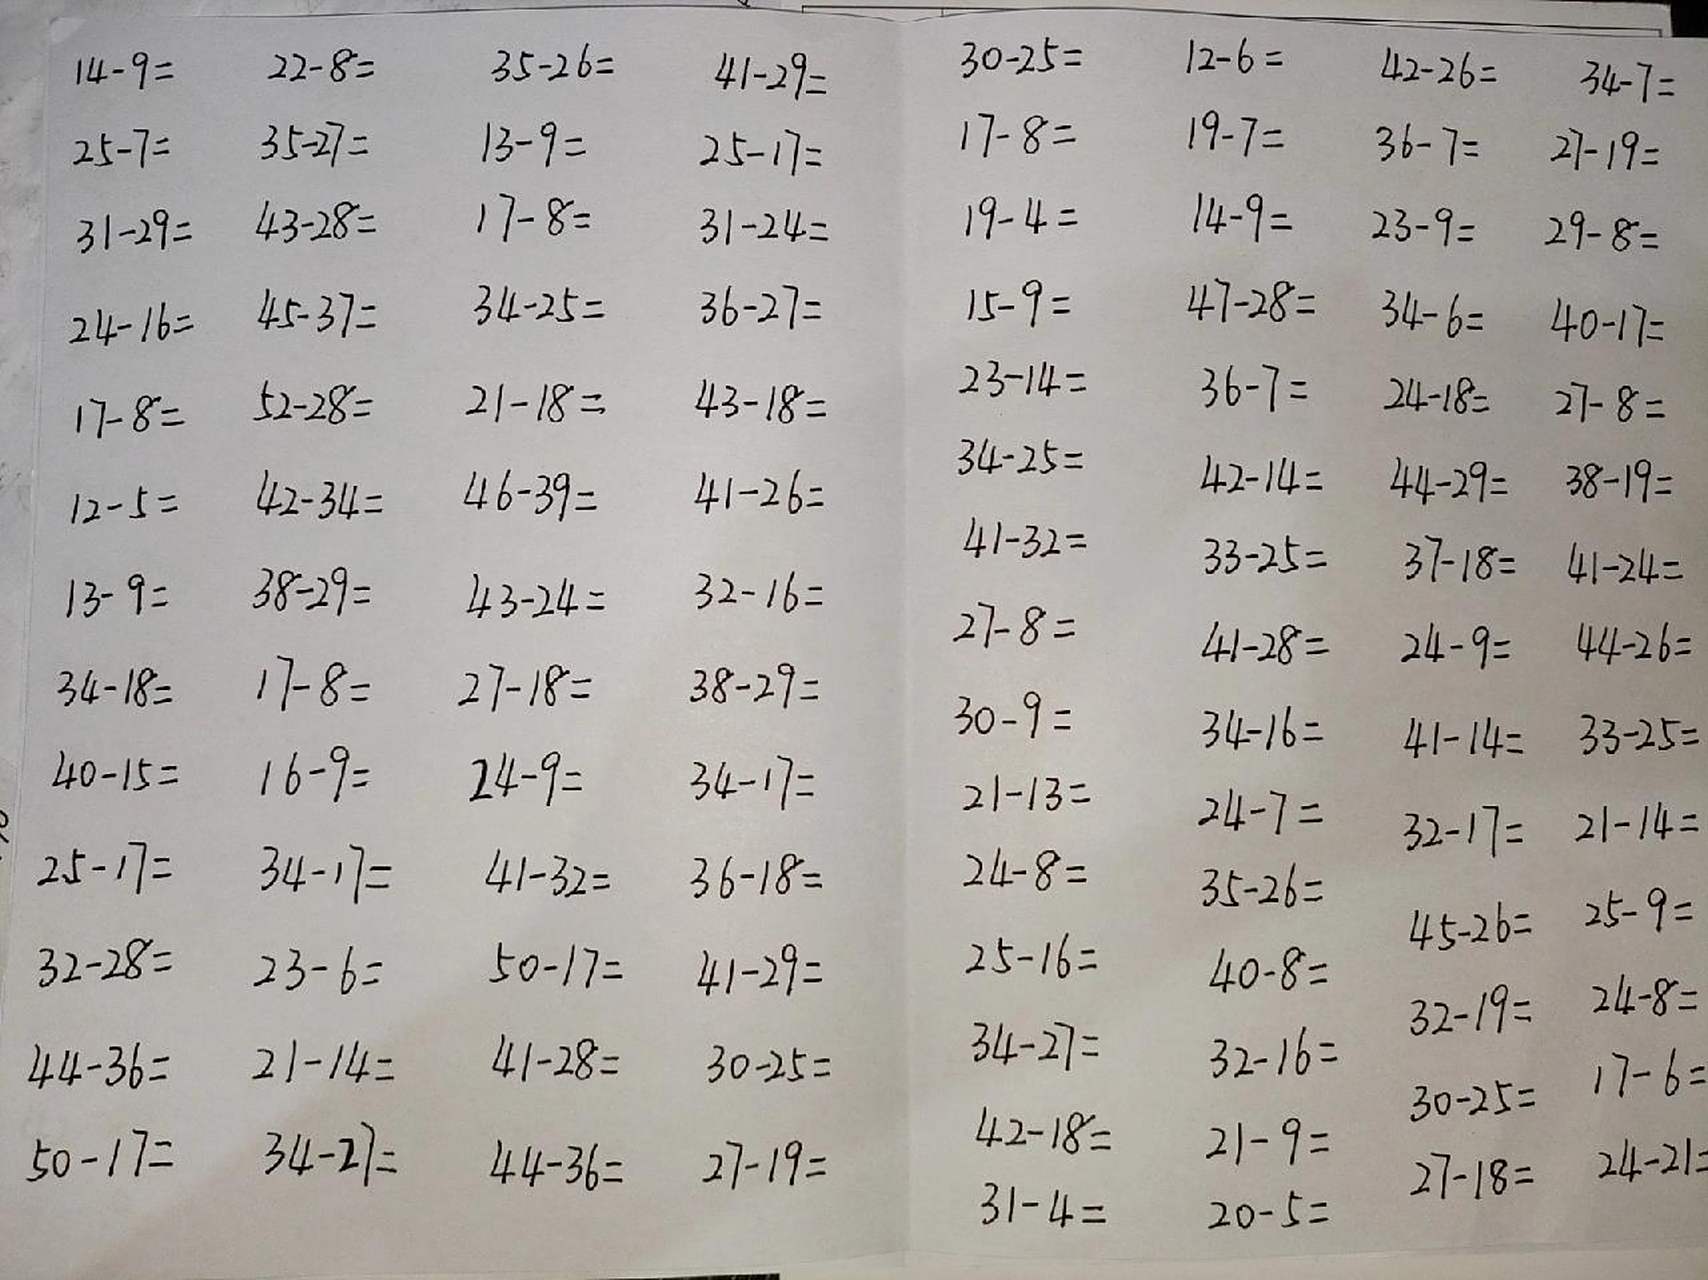 14-9= 22-8= 35-26= 41-29=
25-7= 35-27= 13-9= 25-17=
31-29= 43-28= 17-8= 31-24=
24-16= 45-37= 34-25= 36-27=
17-8= 52-28= 21-18= 43-18=
12-5= 42-34= 46-39= 41-26=
13-9= 38-29= 43-24= 32-16=
34-18= 17-8= 27-18= 38-29=
40-15= 16-9= 24-9= 34-17=
25-17= 34-17= 41-32= 36-18=
32-28= 23-6= 50-17= 41-29=
44-36= 21-14= 41-28= 30-25=
50-17= 34-27= 44-36= 27-19=
30-25= 12-6= 42-26= 34-7=
17-8= 19-7= 36-7= 27-19=
19-4= 14-9= 23-9= 29-8=
15-9= 47-28= 34-6= 40-17=
23-14= 36-7= 24-18= 27-8=
34-25= 42-14= 44-29= 38-19=
41-32= 33-25= 37-18= 41-24=
27-8= 41-28= 24-9= 44-26=
30-9= 34-16= 41-14= 33-25=
21-13= 24-7= 32-17= 21-14=
24-8= 35-26= 45-26= 25-9=
25-16= 40-8= 32-19= 24-8=
34-27= 32-16= 30-25= 17-6=
42-18= 21-9= 27-18= 24-21=
31-4= 20-5=